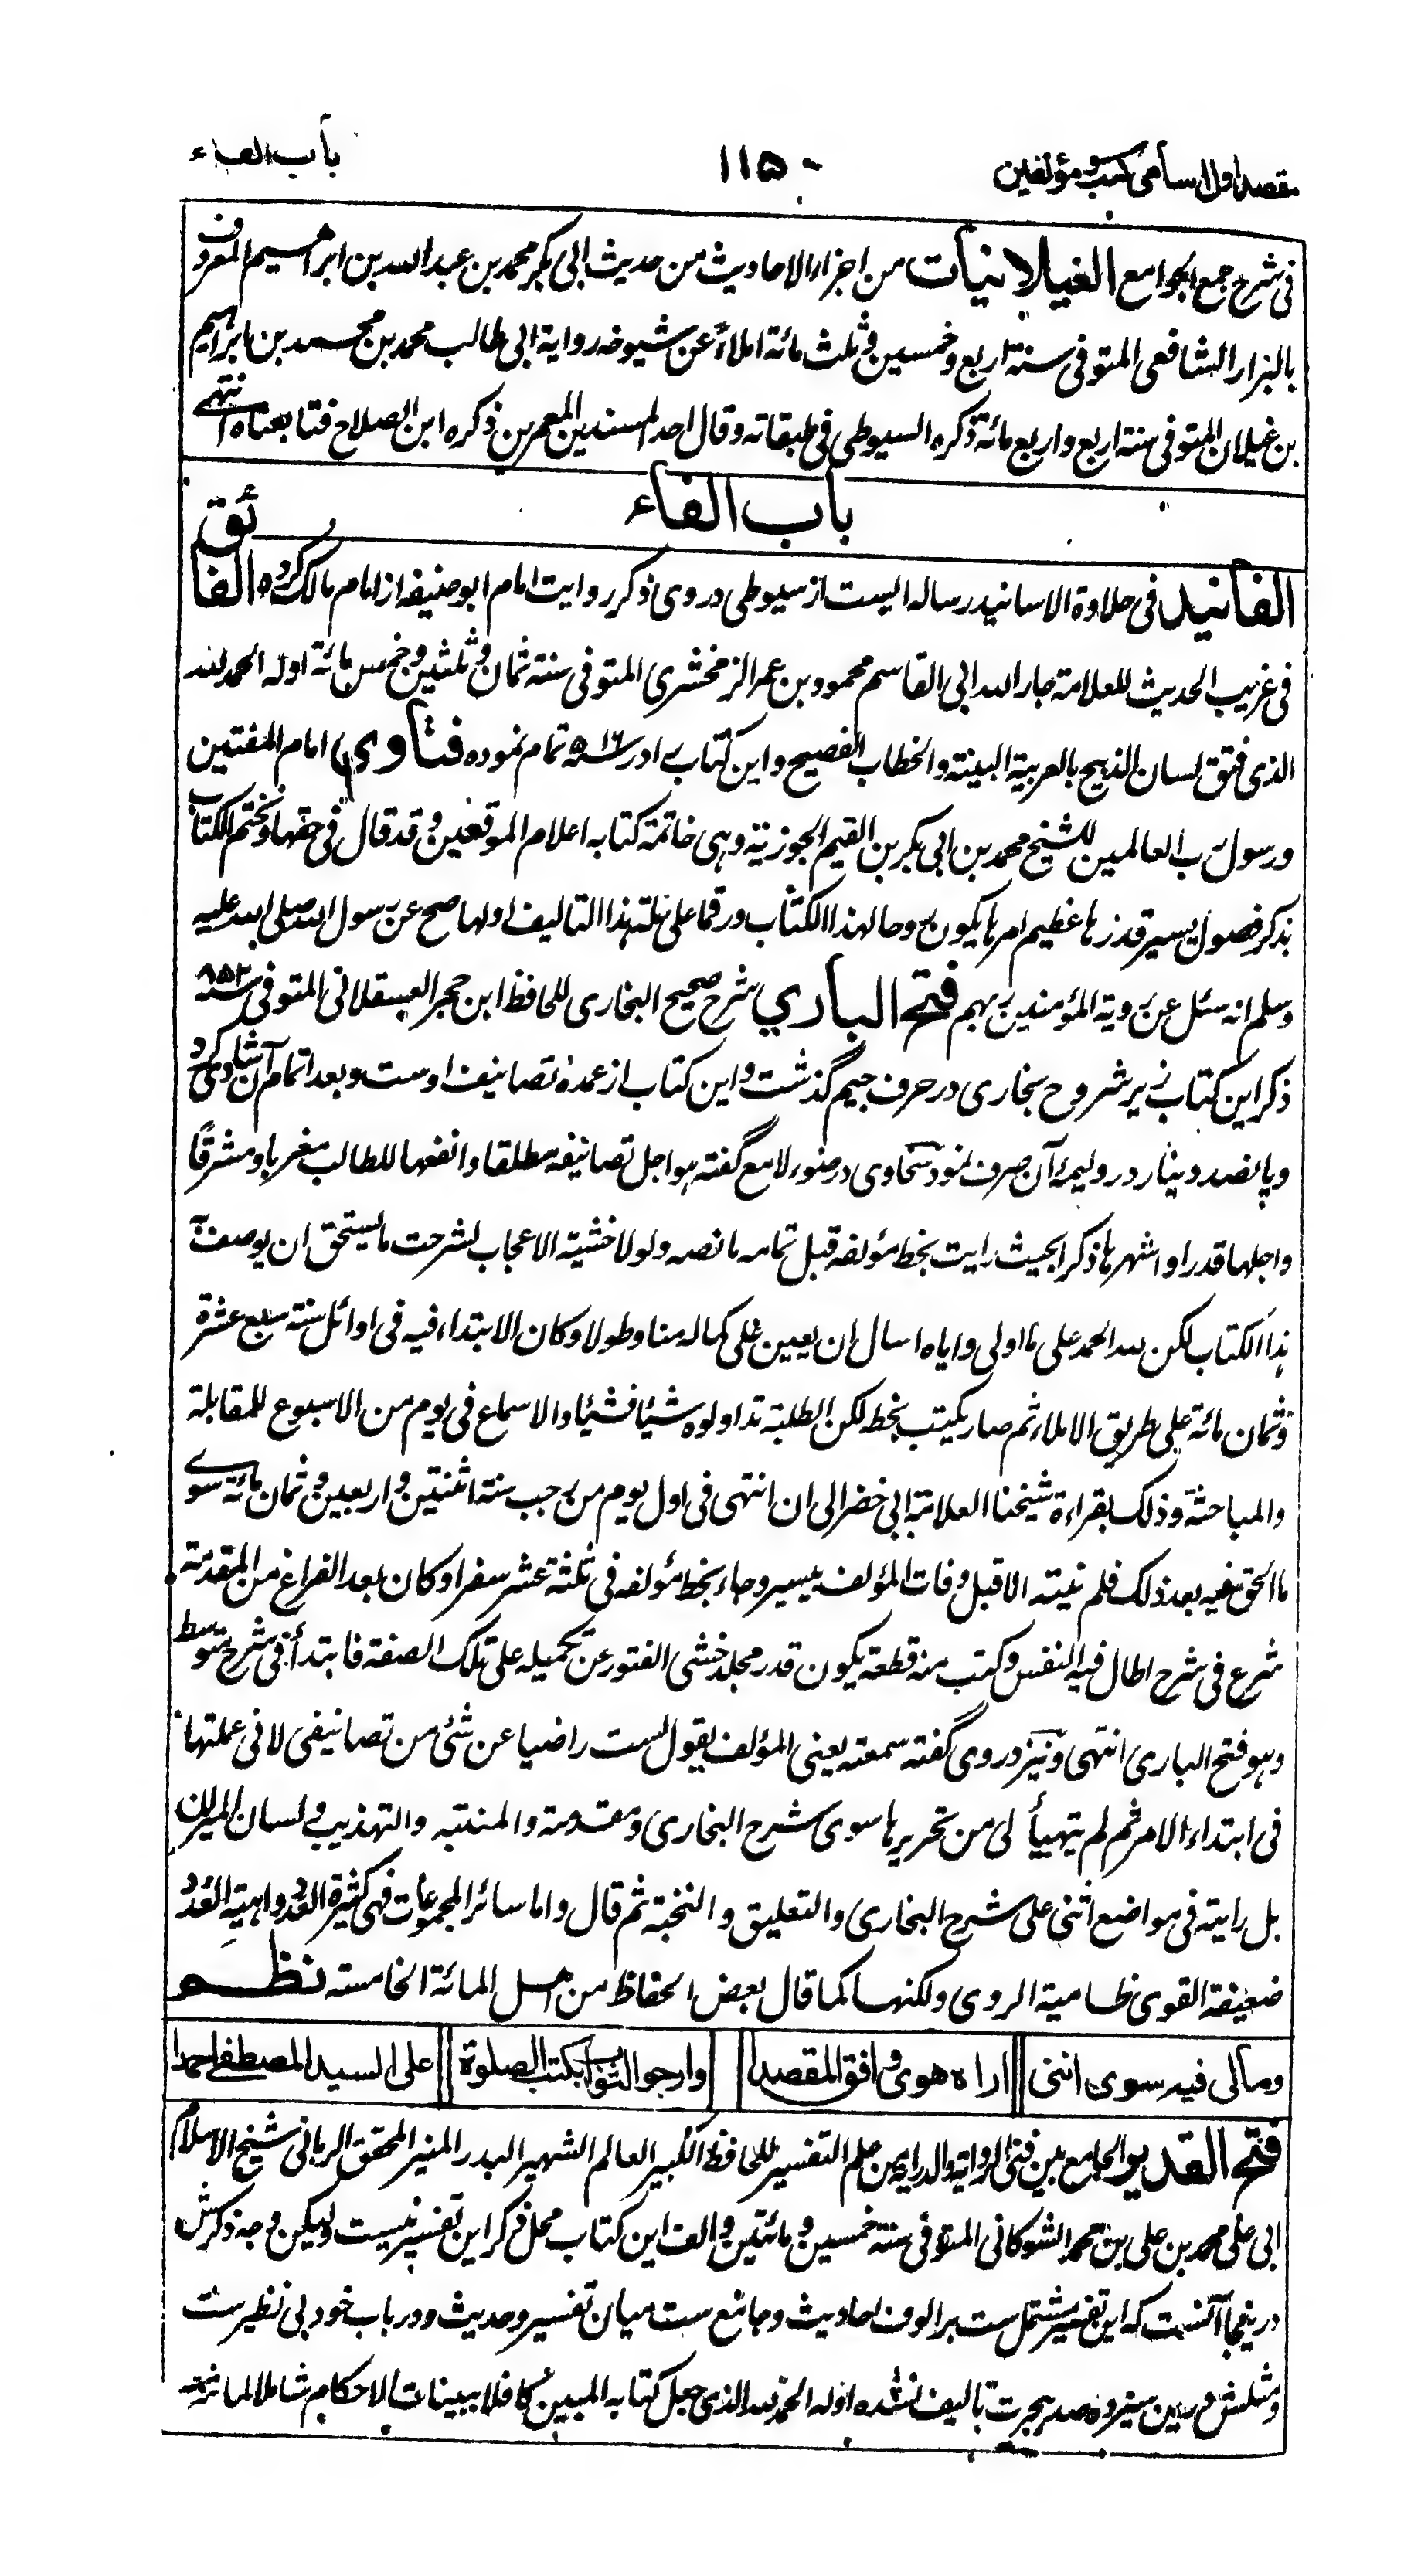 مقصد اول اسامی کتب و مؤلفین
۱۱۵
باب الفاء
فی شرح جمع الجوامع الغیلانیات من اجزاء الاحادیث من حدیث ابی بکر محمد بن عبد الله بن ابراهیم المعروف
بالبزار الشافعی المتوفی سنة اربع وخمسین و ثلث مائة املاءً عن شیوخه روایة ابی طالب محمد بن محمد بن ابراهیم
بن غیلان المتوفی سنة اربع و اربع مائة ذکره السیوطی فی طبقاته وقال احد المسندین المعمرین ذکره ابن الصلاح فتابعناه انتهی
باب الفاء
الفانید فی حلاوة الاسانید رساله ایست از سیوطی در وی ذکر روایت امام ابو حنیفه از امام مالک کرده الفائق
فی غریب الحدیث للعلامة جار الله ابی القاسم محمود بن عمر الزمخشری المتوفی سنة ثمان و ثلثین و خمس مائة اوله الحمد لله
الذی فتق لسان الذبیح بالعربیة البینة والخطاب الفصیح و این کتاب را در سنه ۵۱۶ تمام نموده فتاوی امام المفتین
ورسول رب العالمین للشیخ محمد بن ابی بکر بن القیم الجوزیة وهی خاتمة کتابه اعلام الموقعین وقد قال فی حقها ونختم الکتاب
بذکر فصول یسیر قدرها عظیم امرها یکون روحا لهذا الکتاب ورقما علی حلة هذا التالیف اولها صح عن رسول الله صلی الله علیه
وسلم انه سئل عن رویة المؤمنین ربهم فتح الباري شرح صحیح البخاری للحافظ ابن حجر العسقلانی المتوفی سنه ۸۵۲
ذکر این کتاب زیر شروح بخاری در حرف جیم گذشت و این کتاب از عمدهٔ تصانیف اوست و بعد اتمام آن شادی کرد
و پانصد دینار در ولیمهٔ آن صرف نمود سخاوی در ضوء لامع گفته هو اجل تصانیفه مطلقا وانفعها للطالب مغربا ومشرقًا
واجلها قدرا واشهرها ذکرا بحیث رایت بخط مؤلفه قبل تمامه ما نصه ولولا خشیة الاعجاب لشرحت ما یستحق ان یوصف به
هذا الکتاب لکن لله الحمد علی ما اولی وایاه اسال ان یعین علی کماله منا وطولا وکان الابتداء فیه فی اوائل سنة سبع عشرة
و ثمان مائة علی طریق الاملاء ثم صار یکتب بخطه لکن الطلبة تداولوه شیئا فشیئا والاسماع فی یوم من الاسبوع للمقابلة
والمباحثة وذلک بقراءة شیخنا العلامة ابی خضر الی ان انتهی فی اول یوم من رجب سنة اثنتین و اربعین و ثمان مائة سوی
ما الحق فیه بعد ذلک فلم ینته الا قبل وفات المؤلف بیسیر وجاء بخط مؤلفه فی ثلثة عشر سفرا وکان بعد الفراغ من المقدمة
شرع فی شرح اطال فیه النفس وکتب منه قطعة یکون قدر مجلد خشی الفتور عن تکمیله علی تلک الصفة فابتدأ فی شرح متوسط
وهو فتح الباری انتهی و نیز در وی گفته سمعته یعنی المؤلف یقول لست راضیا عن شئ من تصانیفی لانی عملتها
فی ابتداء الامر ثم لم یتهیأ لی من تحریرها سوی شرح البخاری ومقدمته والمشتبه والتهذیب ولسان المیزان
بل رایته فی مواضع اثنی علی شرح البخاری والتعلیق والنخبة ثم قال واما سائر المجموعات فهی کثیرة العَدَد واهیة العُدَد
ضعیفة القوی ظامیة الروی ولکنها کما قال بعض الحفاظ من اهل المائة الخامسة نظم
ومالی فیه سوی اننی اراه هوی وافق المقصدا وارجو الثواب بکتب الصلوة علی السید المصطفی احمدا
فتح القدیر الجامع بین فنی الروایة والدرایة من علم التفسیر للحافظ الکبیر العالم الشهیر البدر المنیر المحقق الربانی شیخ الاسلام
ابی علی محمد بن علی بن محمد الشوکانی المتوفی سنة خمسین و مائتین والف این کتاب محل ذکر این تفسیر نیست ولیکن وجه ذکرش
درینجا آنست که این تفسیر مشتمل ست بر الوف احادیث و جامع ست میان تفسیر و حدیث و در باب خود بی نظیر ست
و مثلش درین سیزده صد هجرت تالیف نشده اوله الحمد لله الذی جعل کتابه المبین کافلا ببینات الاحکام شاملا لما شرعه